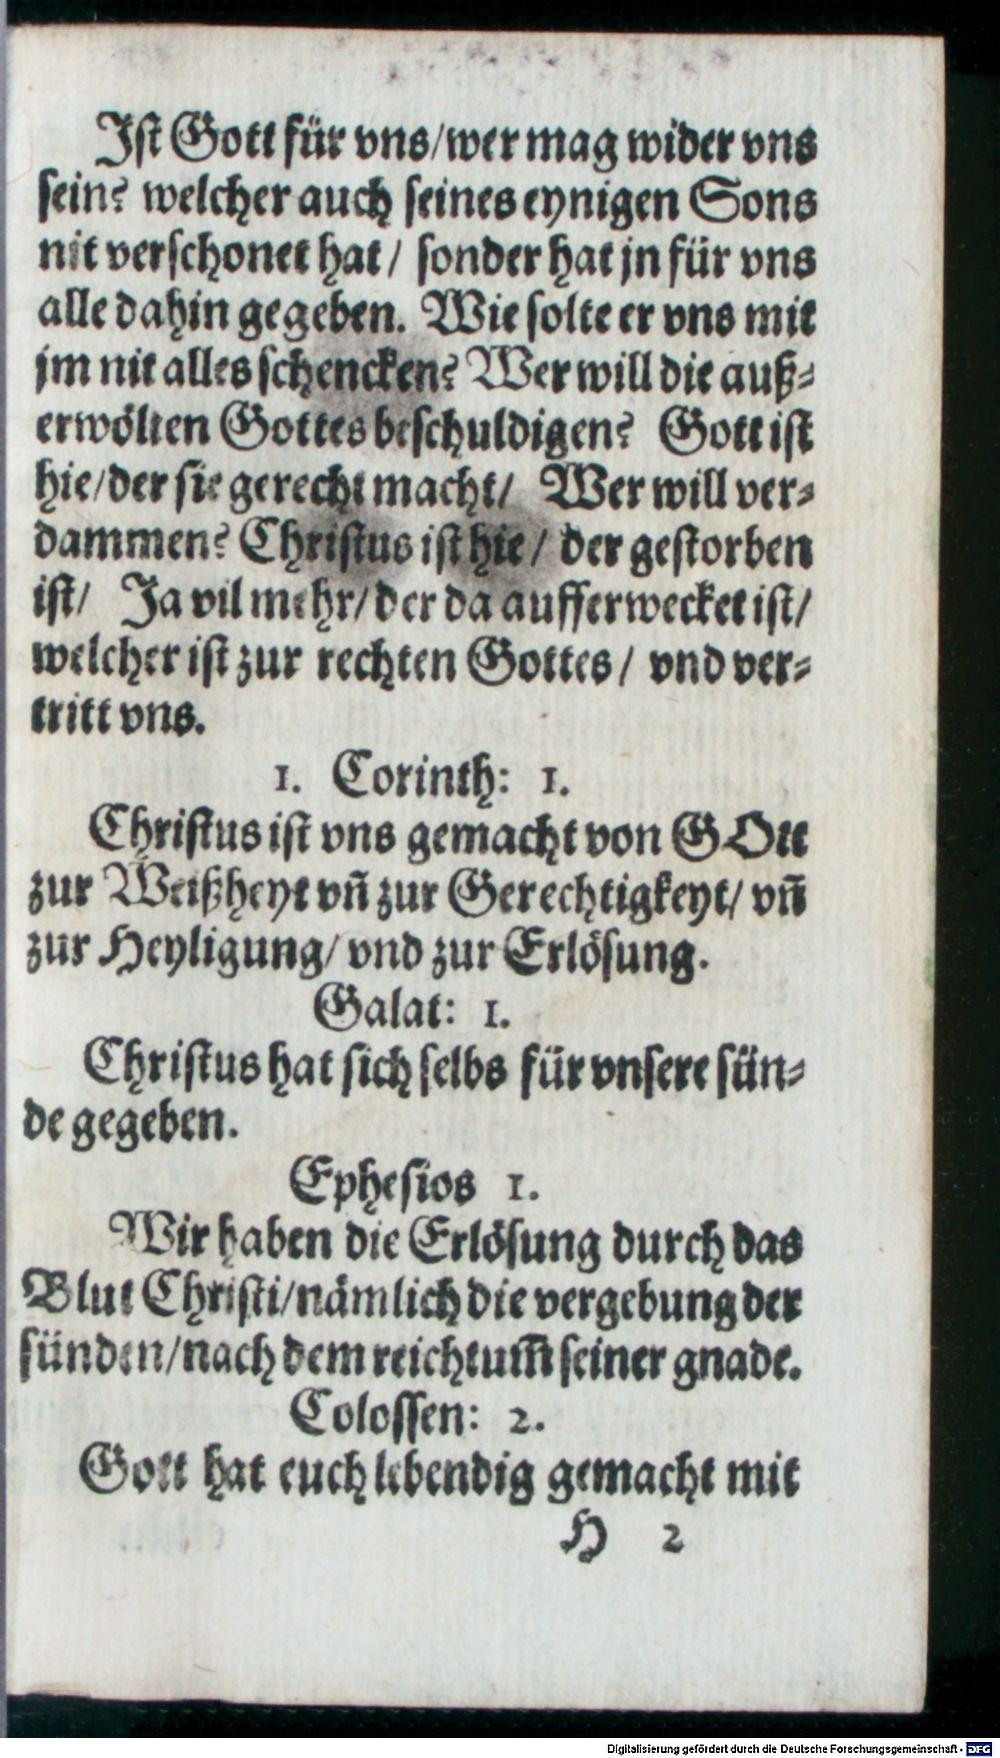 Ist Gott für vns/wer mag wider vns
sein? welcher auch seines eynigen Sons
nit verschonet hat/ sonder hat jn für vns
alle dahin gegeben. Wie solte er vns mit
jm nit alles schencken? Wer will die auß-
erwölten Gottes beschuldigen? Gott ist
hie/der sie gerecht macht/ Wer will ver-
dammen? Christus ist hie/ der gestorben
ist/ Ja vil mehr/der da aufferwecket ist/
welcher ist zur rechten Gottes/ vnd ver-
tritt vns.
1. Corinth: 1.
Christus ist vns gemacht von GOtt
zur Weißheyt vn̄ zur Gerechtigkeyt/ vn̄
zur Heyligung/ vnd zur Erlösung.
Galat: 1.
Christus hat sich selbs für vnsere sün-
de gegeben.
Ephesios 1.
Wir haben die Erlösung durch das
Blut Christi/nämlich die vergebung der
sünden/nach dem reichtum̄ seiner gnade.
Colossen: 2.
Gott hat euch lebendig gemacht mit
H 2
Digitalisierung gefördert durch die Deutsche Forschungsgemeinschaft - DFG